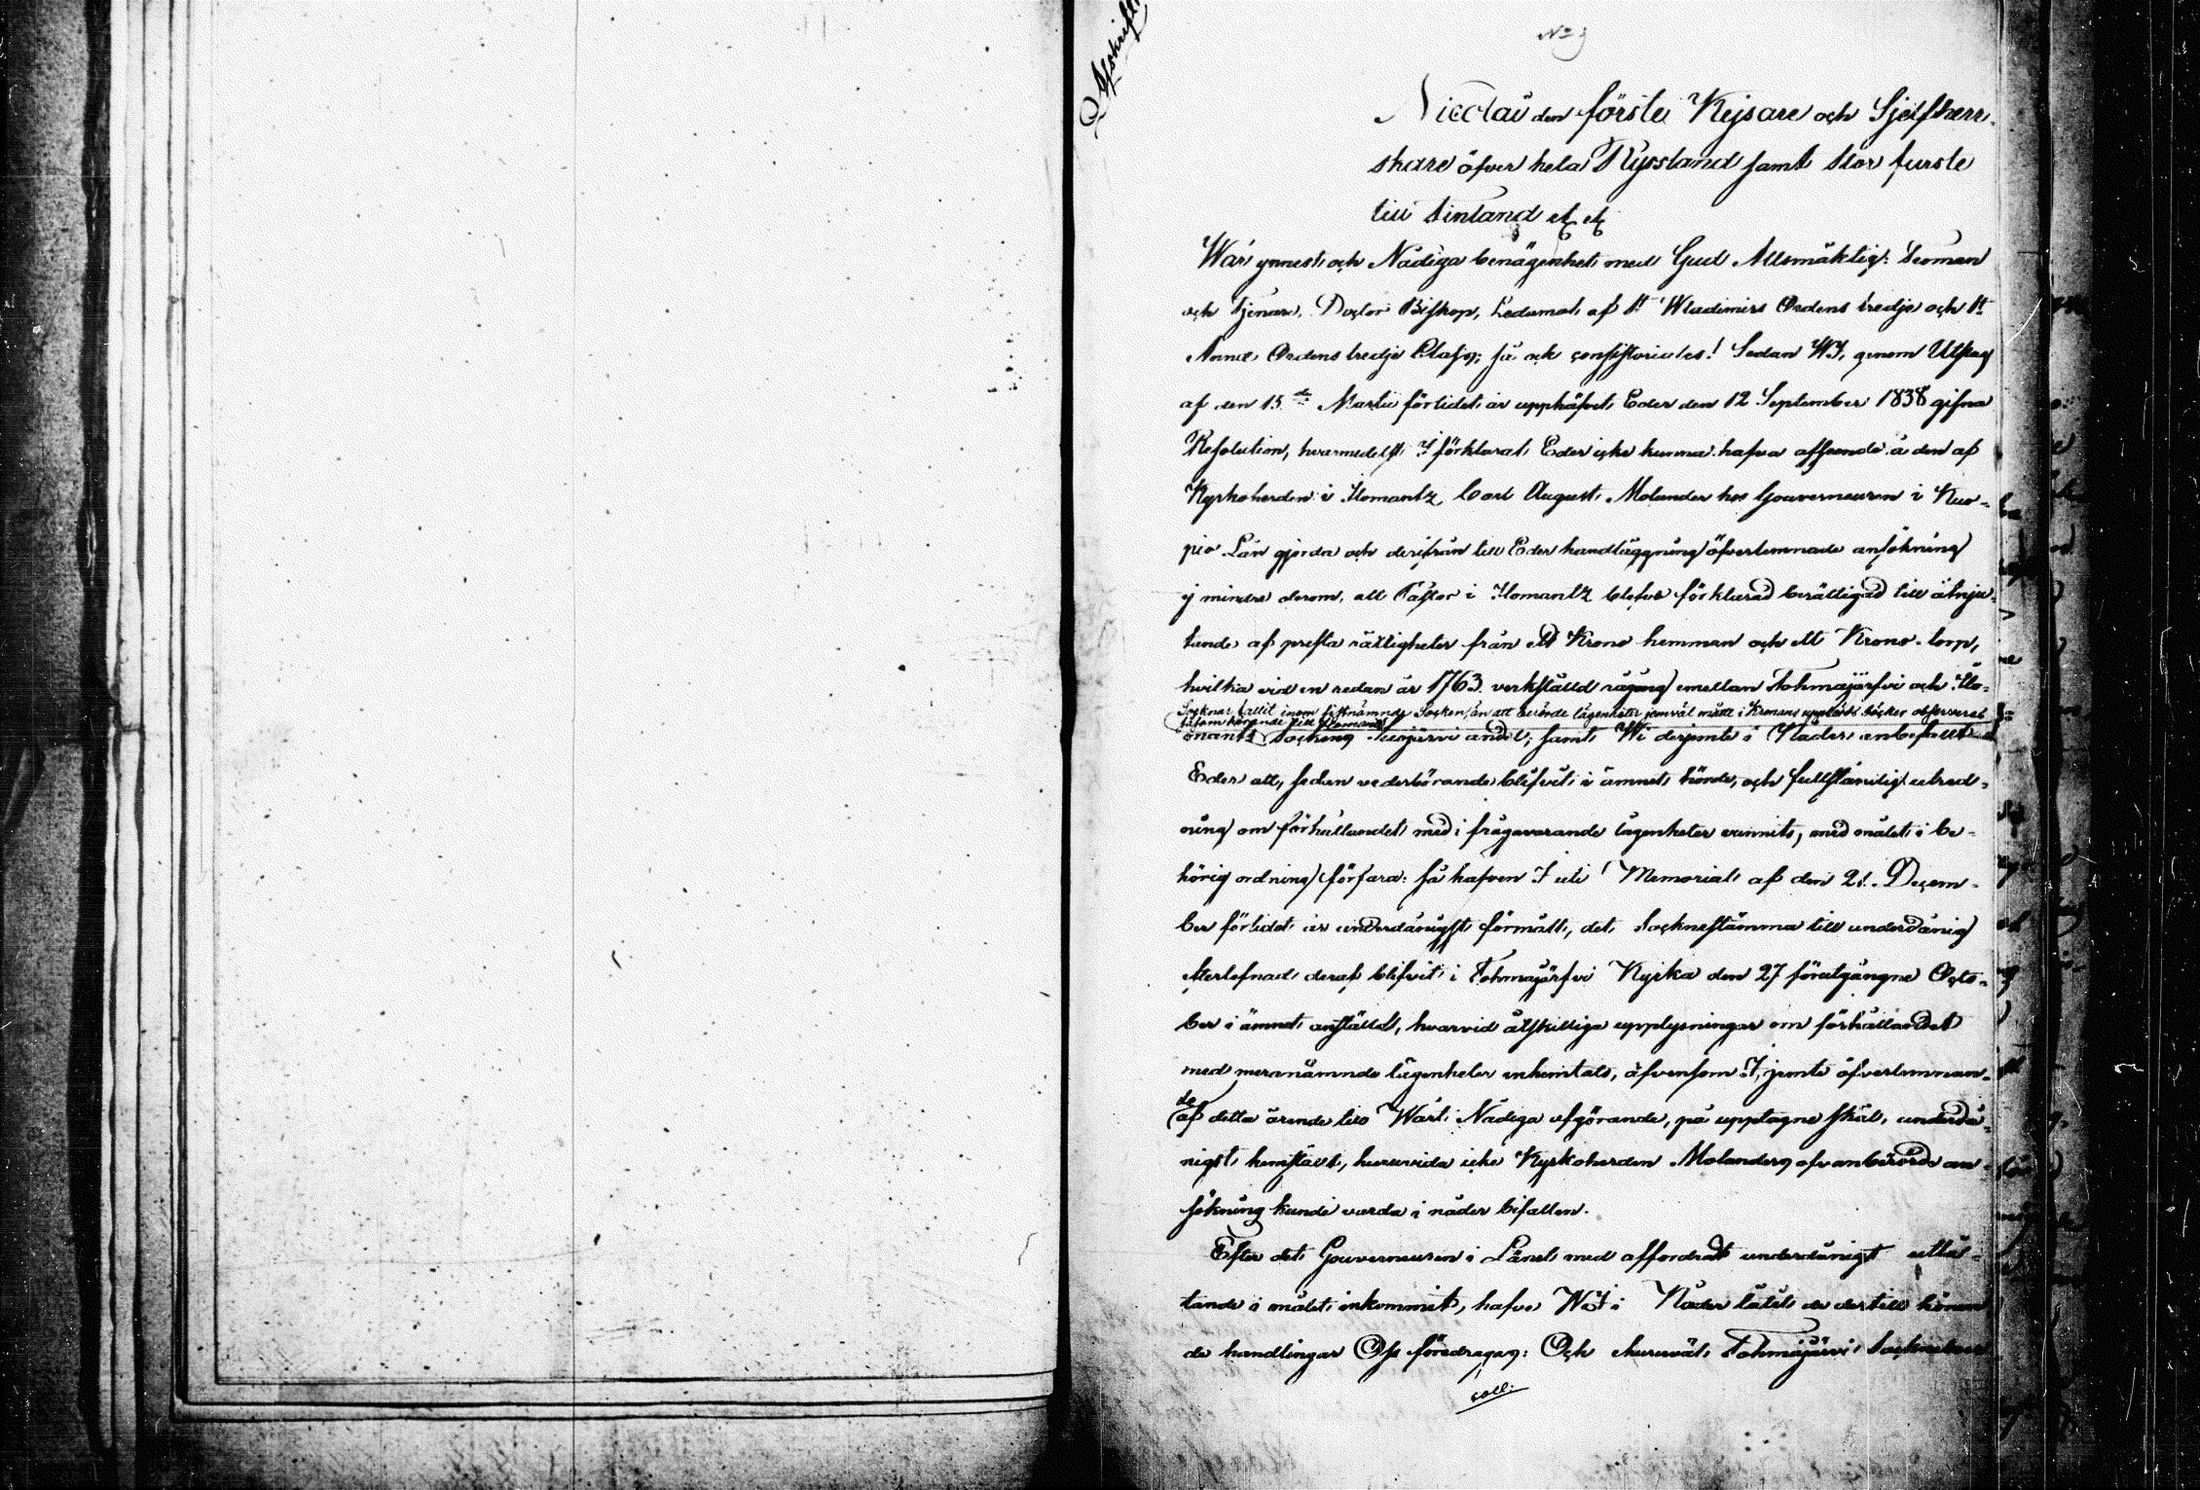 Afskrift
No 9
Nicolai den förste Kejsare och Sjelfherr-
skare öfver hela Ryssland samt Stor furste
till Finland etc etc
Wår ynnest och Nådiga benägenhet med Gud Allsmäktig: Troman
och Tjenare, Doctor Biskop, Ledamot af St Wladimirs Ordens tredje och St
Annæ Ordens tredje Class; så ock consistoriales! Sedan WI, genom Utslag
af den 15de Martii förlidet år upphäfvit Eder den 12 September 1838 gifna
Resolution, hvarmedelst I förklarat Eder icke kunna hafva afseende å den af
Kyrkoherden i Ilomantz Carl August Molander hos Gouverneuren i Kuo-
pio Län gjorda och derifrån till Eder handläggning öfverlemnade ansökning
ej mindre derom, att Pastor i Ilomantz blefve förklarad berättigad till åtnju-
tande af presta rättigheter från ett Krono hemman och ett Krono-torp,
hvilka vid en redan år 1763 verkställd rågång emellan Tohmajärfvi och Ilo-
Socknar fallit inom sistnämnde Socken, än att berörde lägenheter jemväl måtte i Kronans uppbörds böcker observeras
såsom hörande till Ilomantz
mantz Sockens andel; samt Wi derjemte i Nåder anbefallt
Eder att, sedan vederbörande blifvit i ämnet hörde, och fullständig utred-
ning om förhållandet med i frågavarande lägenheter vunnits, med målet i be-
hörig ordning förfara: så hafven I uti Memorial af den 21. Decem-
ber förlidet år underdånigst förmält, det Socknestämma till underdånig
efterlefnad deraf blifvit i Tohmajärfvi Kyrka den 27 föregångne Octo-
ber i ämnet anställd, hvarvid åtskillige upplysningar om förhållandet
med meranämnde lägenheter inhemtats, äfvensom I, jemte öfverlemnan-
de
af detta ärende till Wårt Nådiga afgörande, på upptagne skäl, underdå-
nigst hemställt, huruvida icke Kyrkoherden Molanders ofvanberörde an-
sökning kunde varda i nåder bifallen.
Efter det Gouverneuren i Länet med affordradt underdånigt utlå-
tande i målet inkommit, hafve Wi i Nåder låtit de dertill höran-
de handlingar Oss föredragas: Och ehuruväl Tohmajärvi
coll.